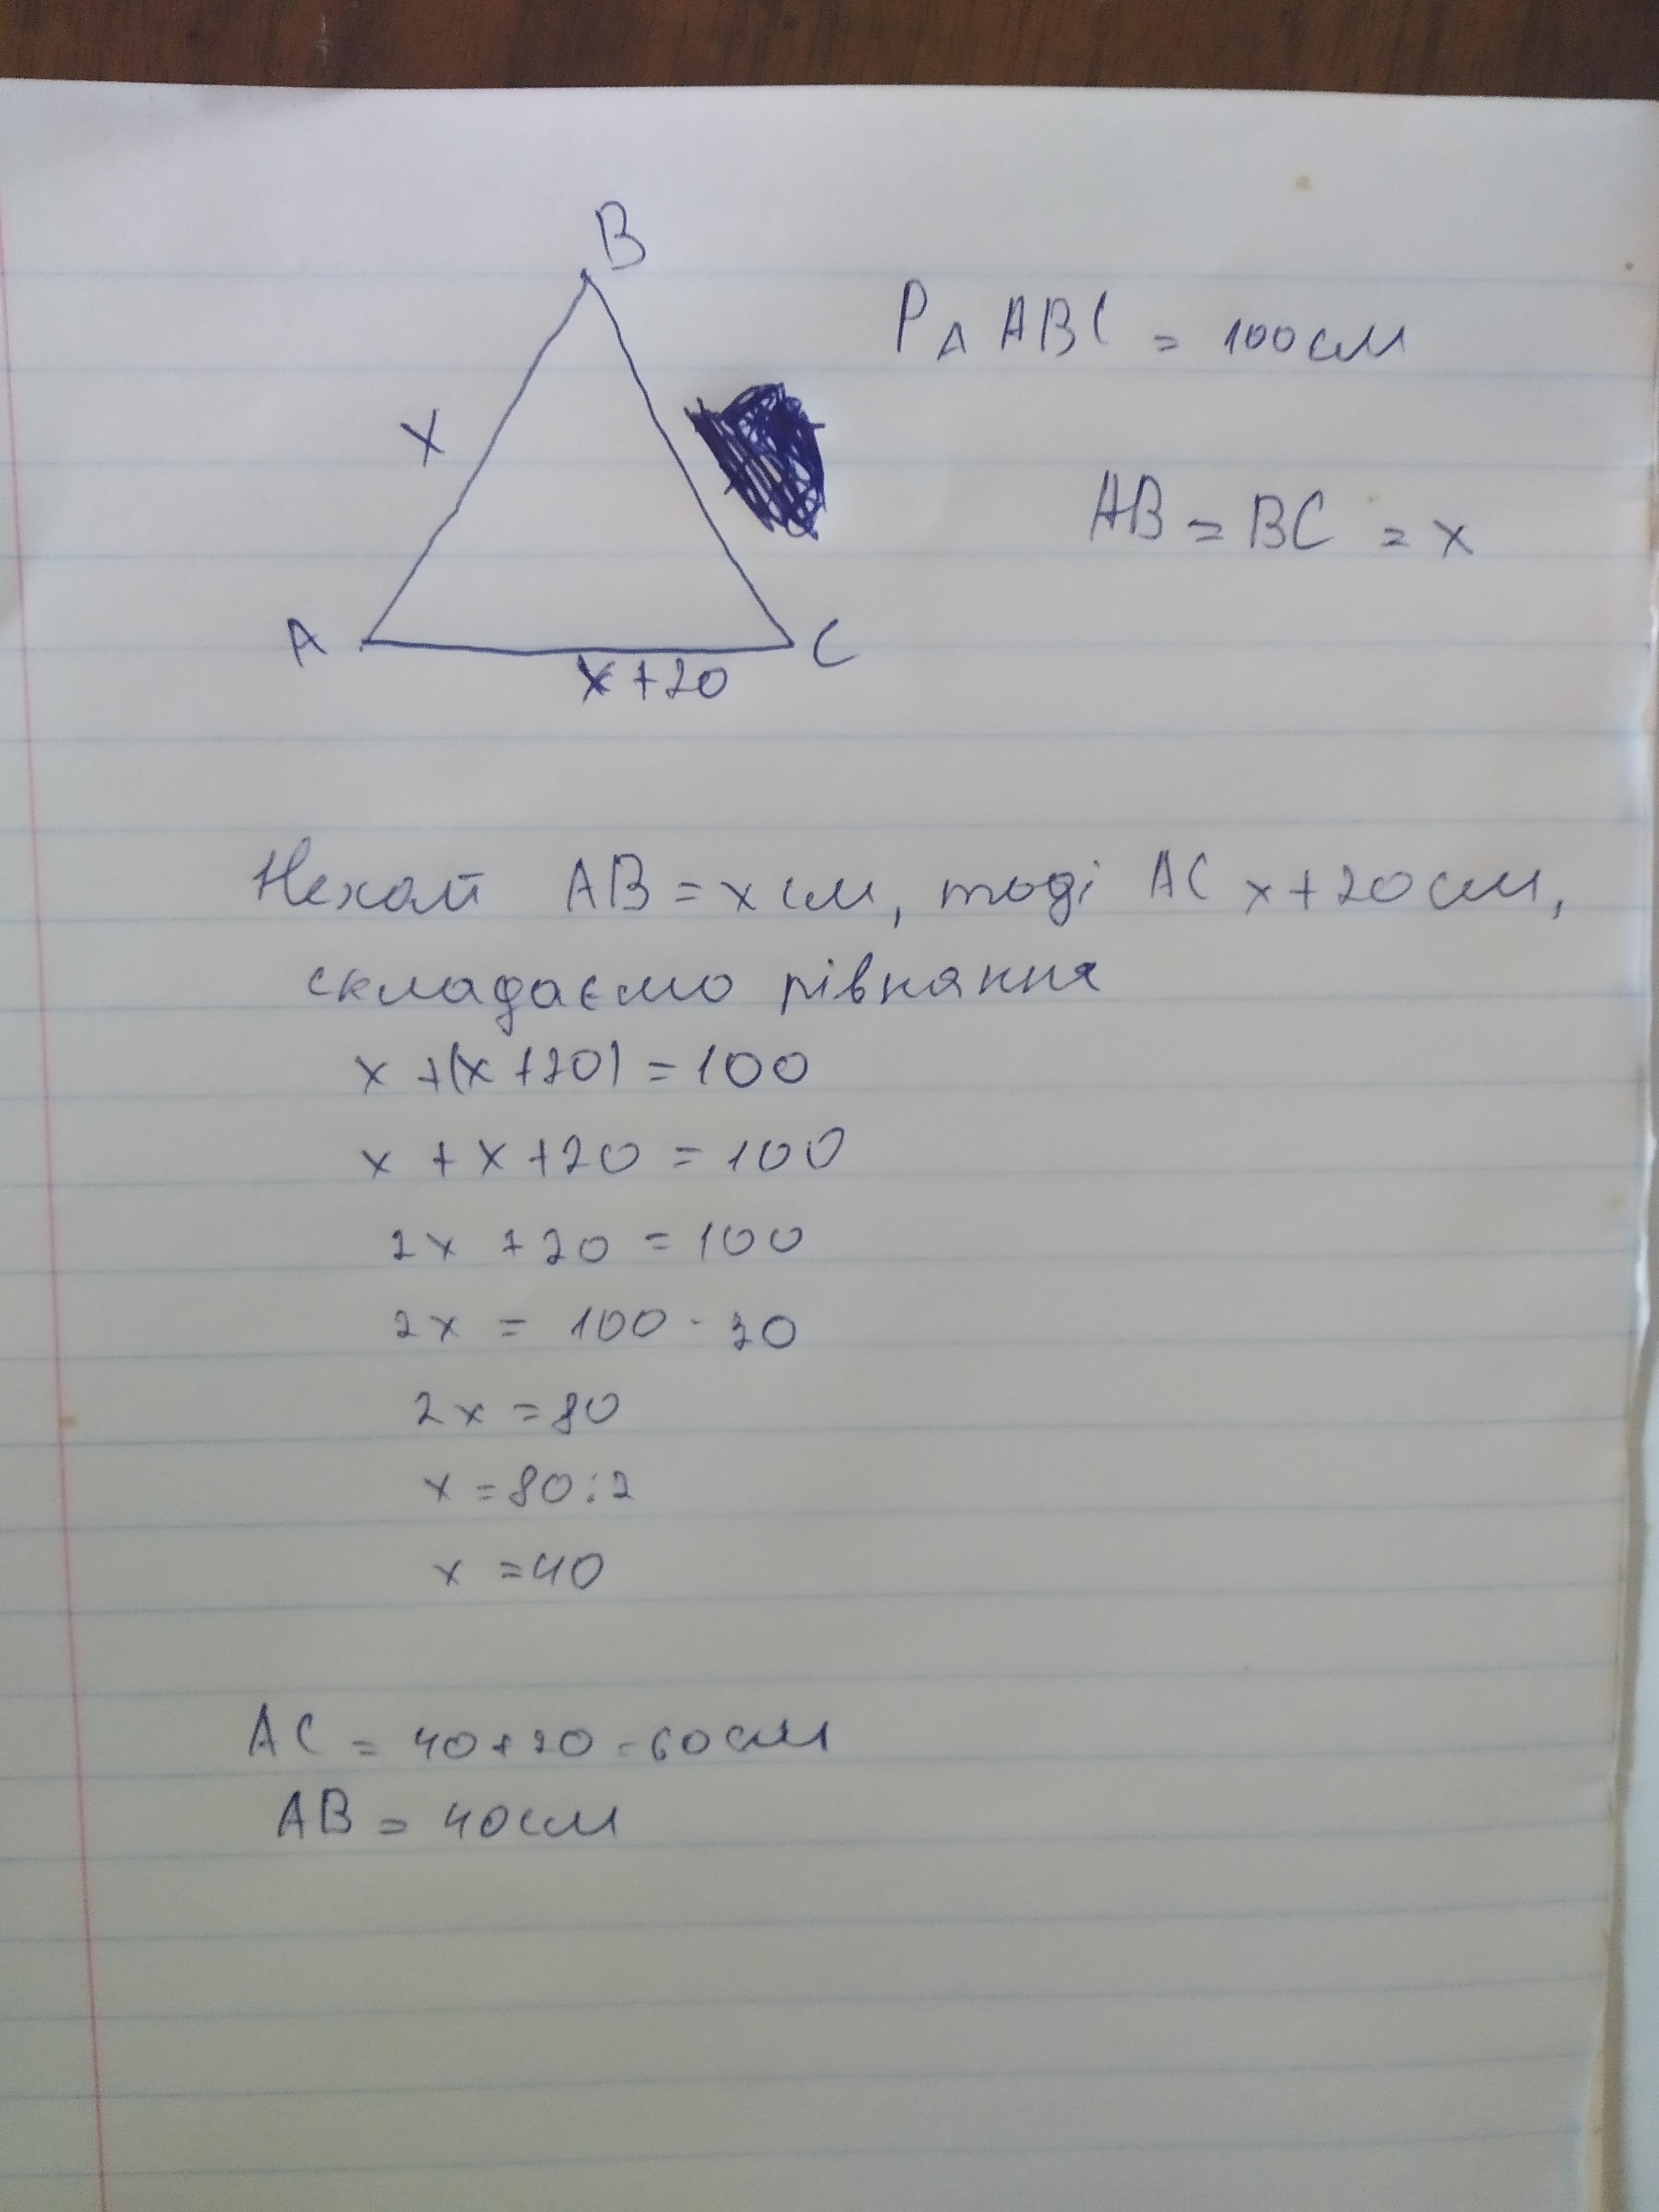 B
P△ ABC = 100см
x
AB = BC = x
A
C
x+20
Нехай AB = x см, тоді AC x+20см,
складаємо рівняння
x +(x+20) = 100
x + x +20 = 100
2x + 20 = 100
2x = 100 - 20
2x = 80
x = 80:2
x = 40
AC = 40+20=60см
AB = 40см